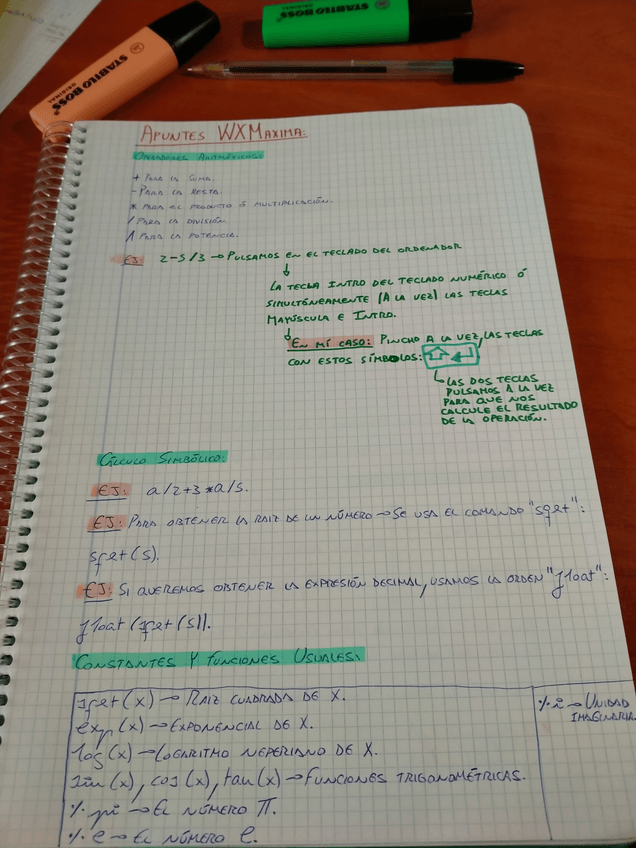 STABILO BOSS
ORIGINAL
STABILO BOSS
ORIGINAL
APUNTES WXMAXIMA:
OPERADORES ARITMÉTICOS:
+ PARA LA SUMA.
- PARA LA RESTA.
* PARA EL PRODUCTO Ó MULTIPLICACIÓN.
/ PARA LA DIVISIÓN.
^ PARA LA POTENCIA.
EJ: 2-5/3 → PULSAMOS EN EL TECLADO DEL ORDENADOR
↓
LA TECLA INTRO DEL TECLADO NUMÉRICO Ó
SIMULTÉNEAMENTE (A LA VEZ) LAS TECLAS
MAYÚSCULA E INTRO.
↓
EN MÍ CASO: PINCHO A LA VEZ, LAS TECLAS
CON ESTOS SÍMBOLOS: ⇧ ↵
↳ LAS DOS TECLAS
PULSAMOS A LA VEZ
PARA QUE NOS
CALCULE EL RESULTADO
DE LA OPERACIÓN.
CÁLCULO SIMBÓLICO:
EJ: a/2+3*a/5.
EJ: PARA OBTENER LA RAIZ DE UN NÚMERO → SE USA EL COMANDO "sqrt":
sqrt(5).
EJ: SI QUEREMOS OBTENER LA EXPRESIÓN DECIMAL, USAMOS LA ORDEN "float":
float(sqrt(5)).
CONSTANTES Y FUNCIONES USUALES:
sqrt(x) → RAIZ CUADRADA DE X.
exp(x) → EXPONENCIAL DE X.
log(x) → LOGARITMO NEPERIANO DE X.
sin(x), cos(x), tan(x) → FUNCIONES TRIGONOMÉTRICAS.
%pi → EL NÚMERO π.
%e → EL NÚMERO e.
%i → UNIDAD
IMAGINARIA.